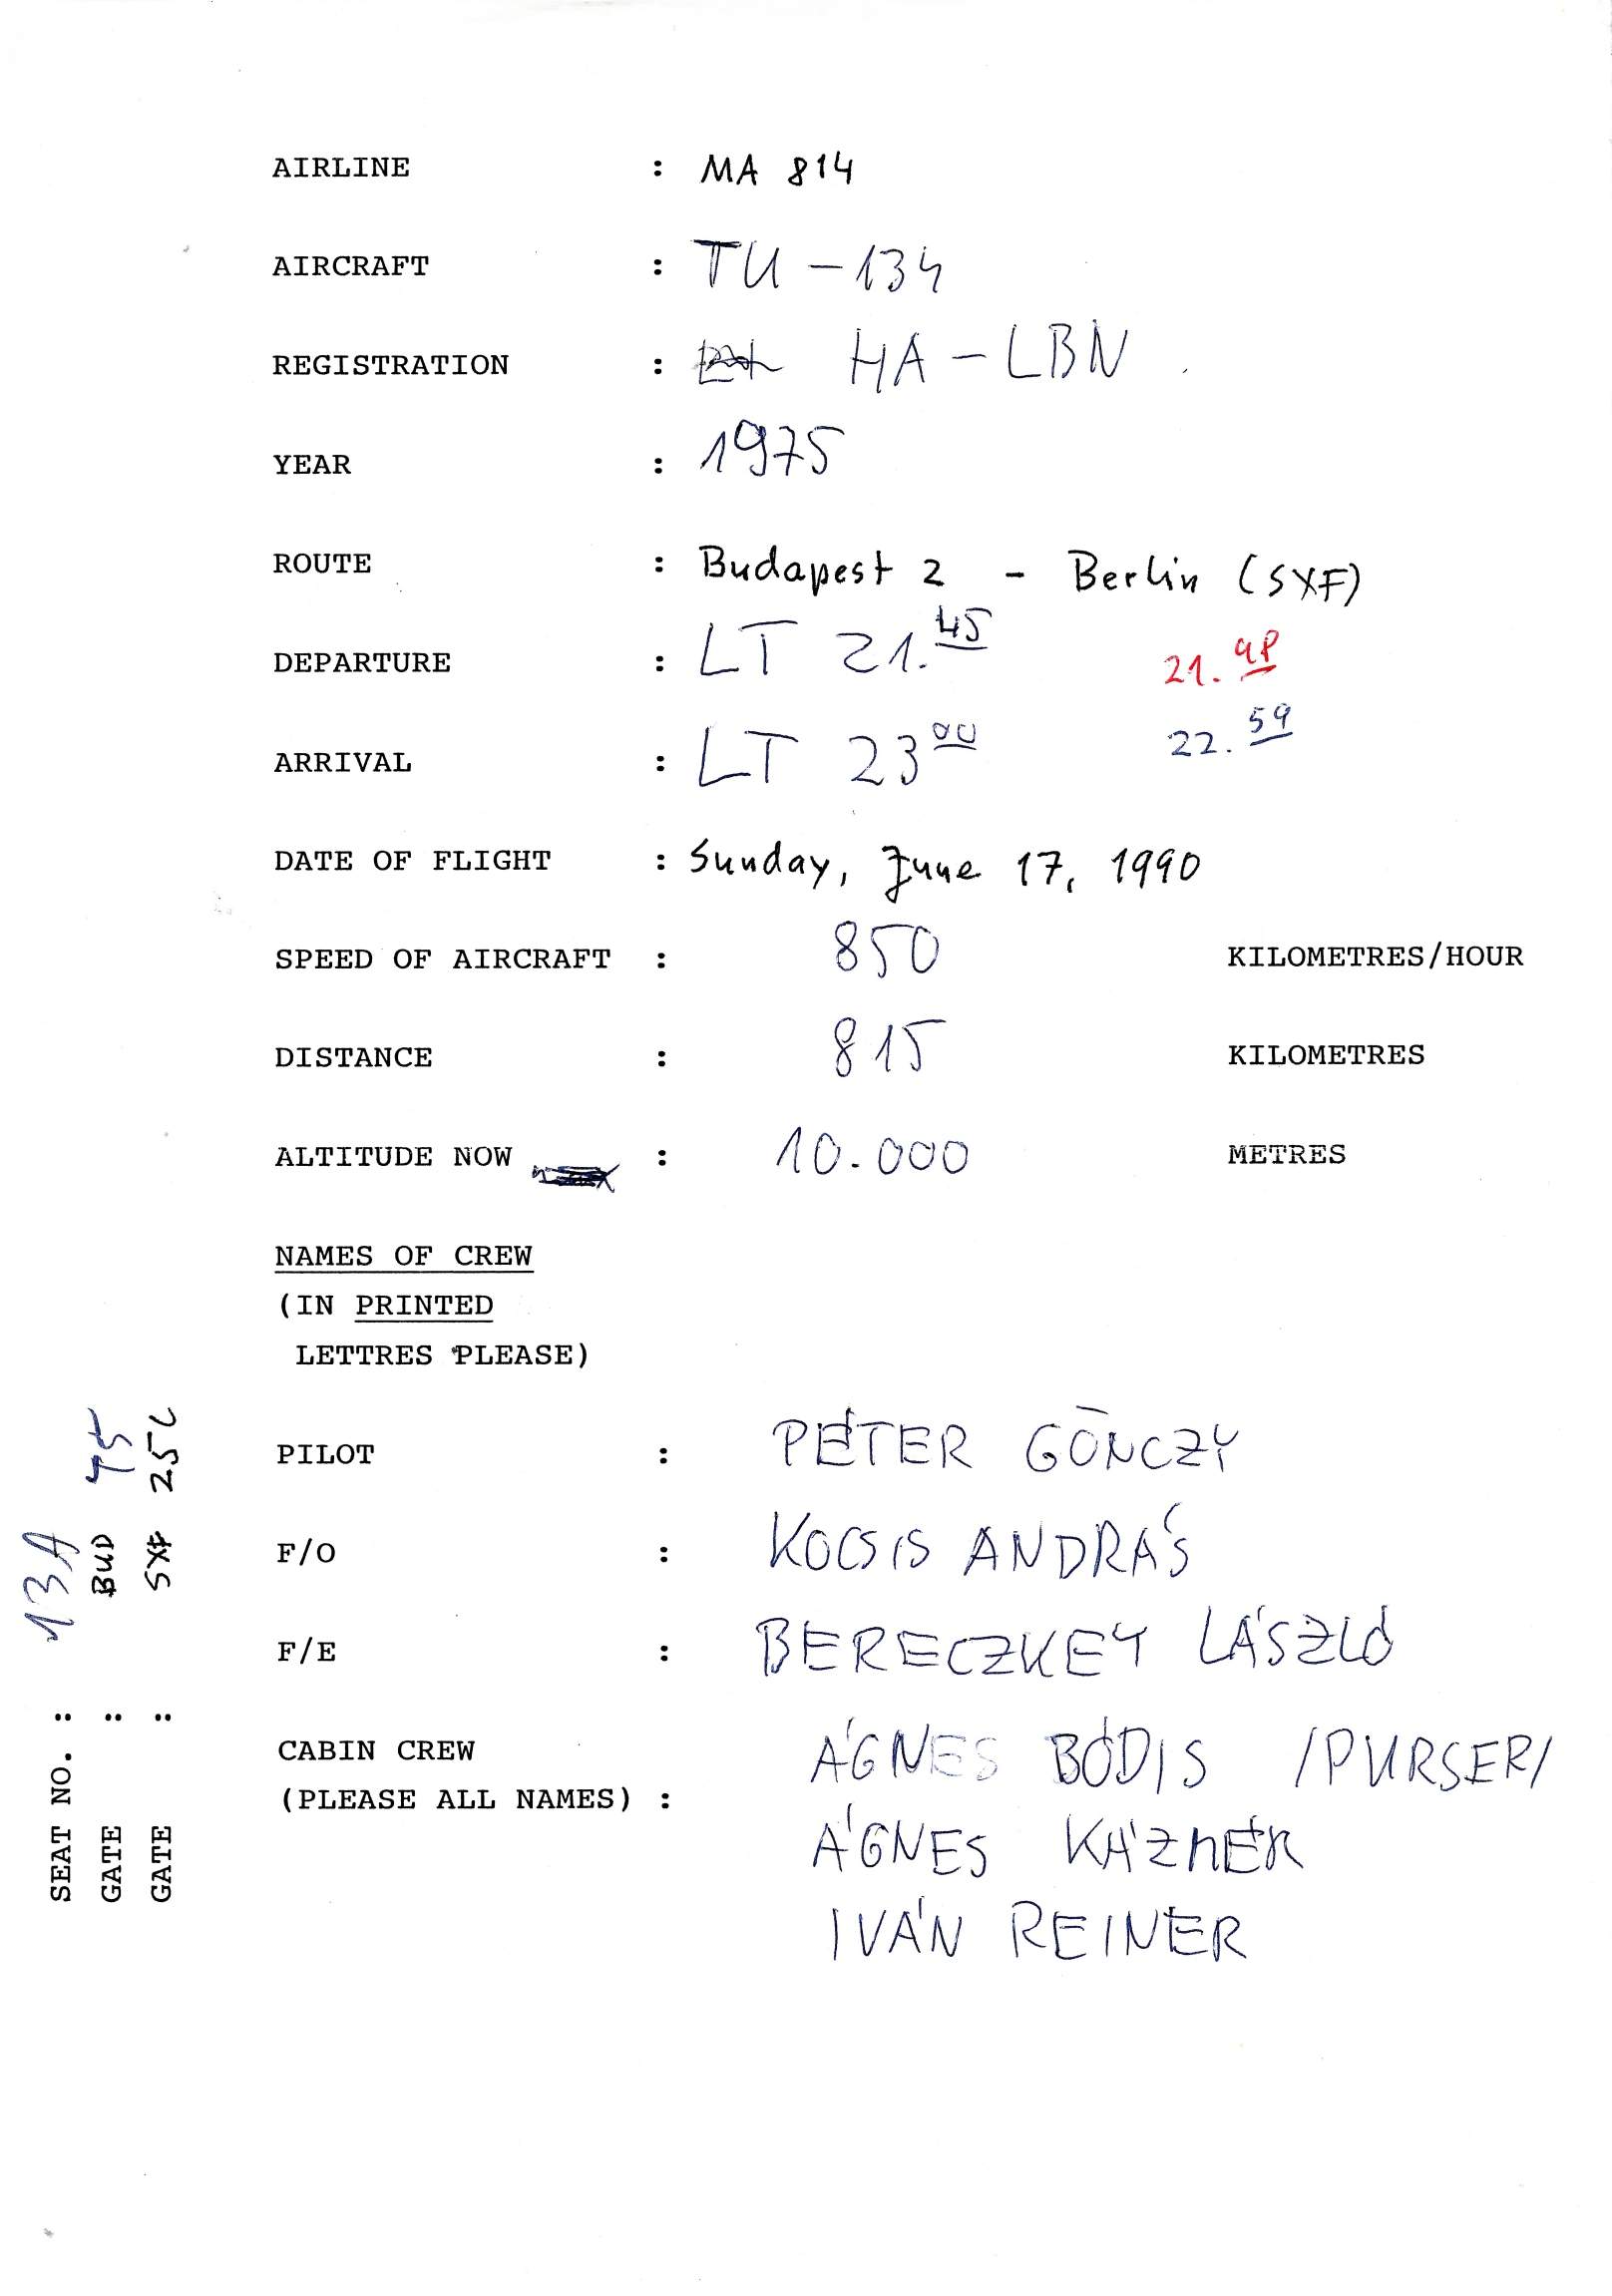 AIRLINE : MA 814
AIRCRAFT : TU - 134
REGISTRATION : HA - LBN
YEAR : 1975
ROUTE : Budapest 2 - Berlin (SXF)
DEPARTURE : LT 21.45 21.48
ARRIVAL : LT 23 00 22.59
DATE OF FLIGHT : Sunday, June 17, 1990
SPEED OF AIRCRAFT : 850 KILOMETRES/HOUR
DISTANCE : 815 KILOMETRES
ALTITUDE NOW : 10.000 METRES
NAMES OF CREW
(IN PRINTED
LETTRES PLEASE)
PILOT : PÉTER GÖNCZY
F/O : KOCSIS ANDRÁS
F/E : BERECZKEY LÁSZLÓ
CABIN CREW ÁGNES BÓDIS /PURSER/
(PLEASE ALL NAMES) :
ÁGNES KÁZMÉR
IVÁN REINER
SEAT NO. : 13A
GATE : BUD
GATE : SXF 25C